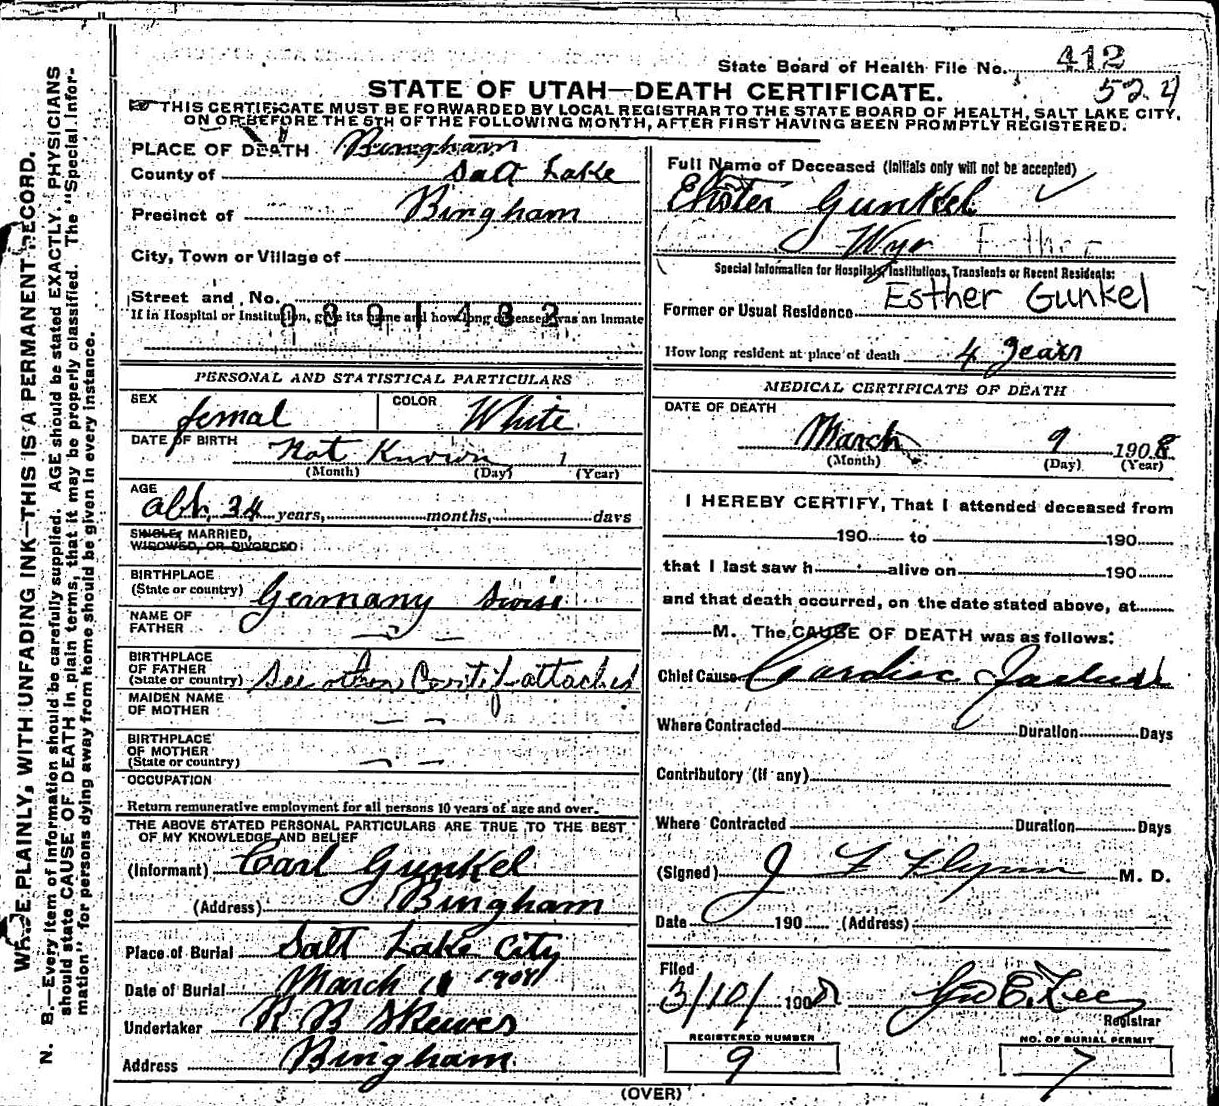 State Board of Health File No. 412
STATE OF UTAH—DEATH CERTIFICATE. 5224
THIS CERTIFICATE MUST BE FORWARDED BY LOCAL REGISTRAR TO THE STATE BOARD OF HEALTH, SALT LAKE CITY,
ON OR BEFORE THE 5TH OF THE FOLLOWING MONTH, AFTER FIRST HAVING BEEN PROMPTLY REGISTERED.
PLACE OF DEATH Bingham
County of Salt Lake
Precinct of Bingham
City, Town or Village of
Street and No.
0801482
If in Hospital or Institution, give its name and how long deceased was an inmate
PERSONAL AND STATISTICAL PARTICULARS
SEX femal COLOR White
DATE OF BIRTH Not Known 1
(Month) (Day) (Year)
AGE abt. 34 years, months, days
SINGLE, MARRIED,
WIDOWED, OR DIVORCED
BIRTHPLACE
(State or country) Germany Swiss
NAME OF
FATHER
BIRTHPLACE
OF FATHER
(State or country) See other Certif attached
MAIDEN NAME
OF MOTHER
BIRTHPLACE
OF MOTHER
(State or country)
OCCUPATION
Return remunerative employment for all persons 10 years of age and over.
THE ABOVE STATED PERSONAL PARTICULARS ARE TRUE TO THE BEST
OF MY KNOWLEDGE AND BELIEF
(Informant) Carl Gunkel
(Address) Bingham
Place of Burial Salt Lake City
Date of Burial March 11 1908
Undertaker R B Skewes
Address Bingham
Full Name of Deceased (Initials only will not be accepted)
Ehster Gunkel
Wyr Esther
Special Information for Hospitals, Institutions, Transients or Recent Residents:
Esther Gunkel
Former or Usual Residence
How long resident at place of death 4 years
MEDICAL CERTIFICATE OF DEATH
DATE OF DEATH
March 9 1908
(Month) (Day) (Year)
I HEREBY CERTIFY, That I attended deceased from
190 to 190
that I last saw h alive on 190
and that death occurred, on the date stated above, at
M. The CAUSE OF DEATH was as follows:
Chief Cause Cardiac Failure
Where Contracted Duration Days
Contributory (if any)
Where Contracted Duration Days
(Signed) J F Flynn M. D.
Date 190 (Address)
Filed
3/10/ 1908 Geo E. Lee
Registrar
REGISTERED NUMBER
9
NO. OF BURIAL PERMIT
7
(OVER)
WRITE PLAINLY, WITH UNFADING INK—THIS IS A PERMANENT RECORD.
N. B.—Every item of information should be carefully supplied. AGE should be stated EXACTLY. PHYSICIANS
should state CAUSE OF DEATH in plain terms, that it may be properly classified. The "Special Infor-
mation" for persons dying away from home should be given in every instance.